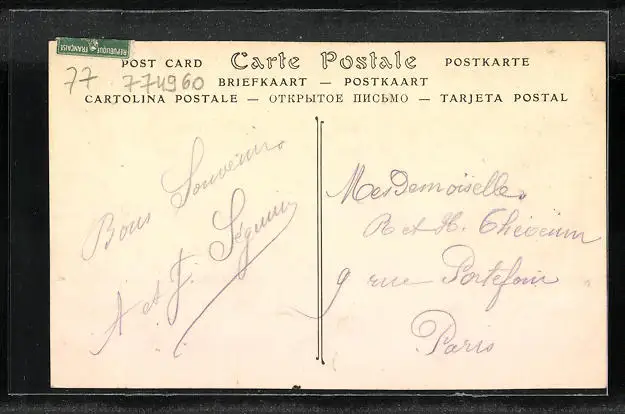 REPUBLIQUE FRANÇAISE
77 774960
POST CARD Carte Postale POSTKARTE
BRIEFKAART — POSTKAART
CARTOLINA POSTALE — ОТКРЫТОЕ ПИСЬМО — TARJETA POSTAL
Bons Souvenirs
A et J. Séguin
Mesdemoiselles
R et H.
9 rue Portefoin
Paris